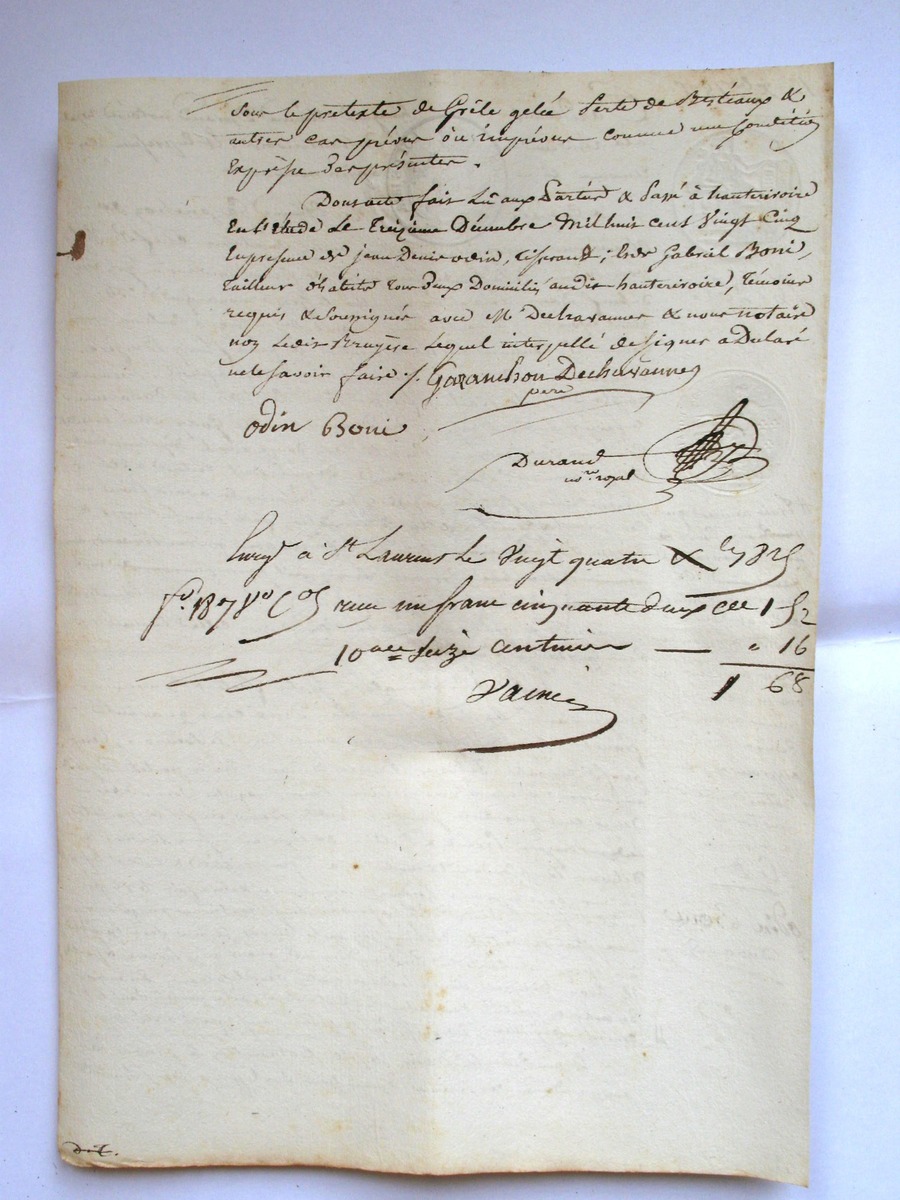 Sous le pretexte de Grêle gelée Perte de Bestiaux &
autres cas prévus ou imprévus comme une Condition
Expresse des présentes .
Dont acte fait Lû aux Parties & Passé à hauterivoire
En l'étude Le Treizième Décembre Mil huit cent Vingt Cinq
En présence de jean Denis odin, tisserand, & de Gabriel Boni,
tailleur d'habits tous deux Domiciliés audit hauterivoire, témoins
requis & soussignés avec M Dechavannes & nous notaire
non Ledit Bruyère Lequel interpellé de signer a Déclaré
ne le savoir faire ./. Garanchon Dechavannes
père
odin Boni
Durand
nre royal
Enregé à St Laurent Le Vingt quatre Xbre 1825
fo 187 Vo reçu un franc cinquante deux ces 1 52
10eme seize centimes — " 16
1 68
D.C.